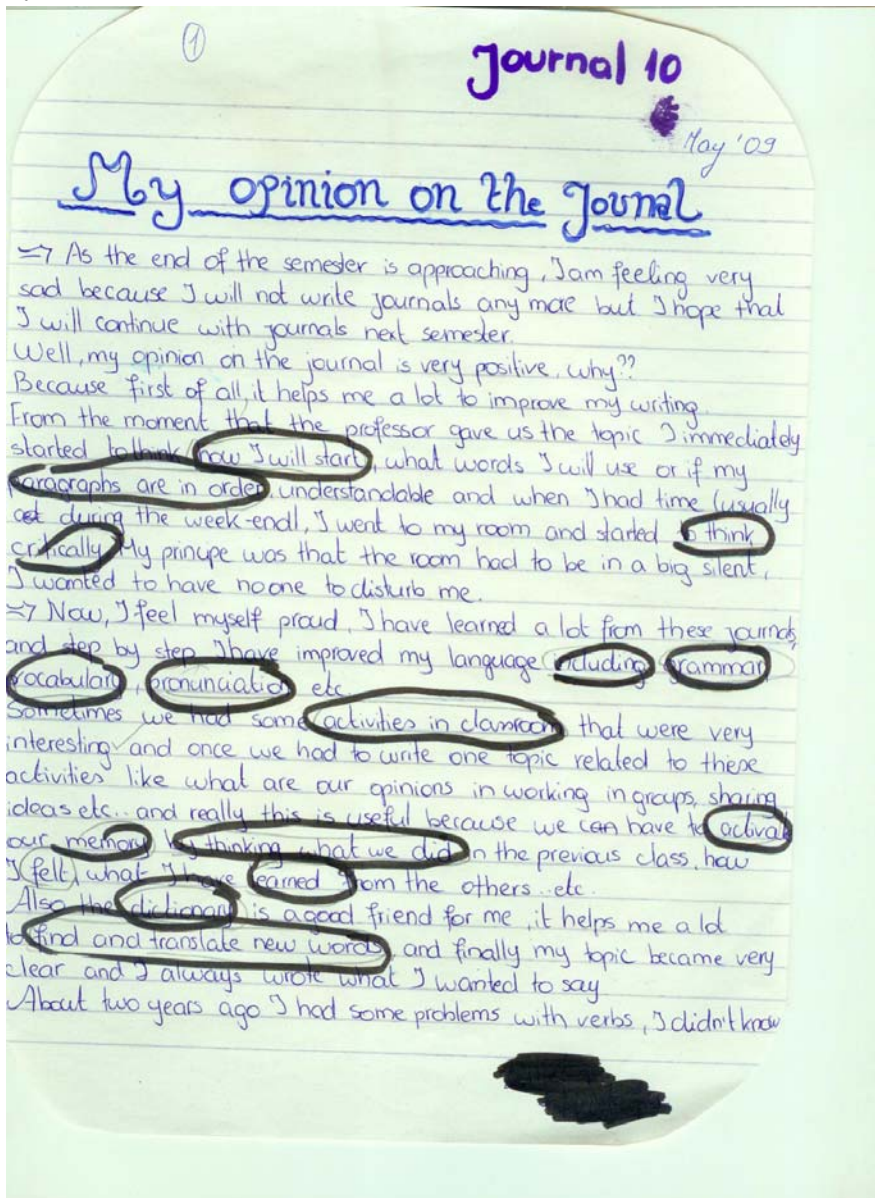 1
Journal 10
May '09
My opinion on the Jounal
=7 As the end of the semester is approaching, I am feeling very
sad because I will not write journals any more but I hope that
I will continue with journals next semester.
Well, my opinion on the journal is very positive. why??
Because first of all, it helps me a lot to improve my writing.
From the moment that the professor gave us the topic I immediately
started to think how I will start, what words I will use or if my
paragraphs are in order, understandable and when I had time (usually
during the week-end), I went to my room and started to think
critically. My principe was that the room had to be in a big silent,
I wanted to have no one to disturb me.
=7 Now, I feel myself proud, I have learned a lot from these journals,
and step by step I have improved my language including grammar
vocabulary, pronunciation etc.
Sometimes we had some activities in classroom that were very
interesting and once we had to write one topic related to these
activities like what are our opinions in working in groups, sharing
ideas etc.. and really this is useful because we can have to activate
our memory by thinking what we did in the previous class, how
I felt, what I have learned from the others..etc.
Also the dictionary is a good friend for me, it helps me a lot
to find and translate new words, and finally my topic became very
clear and I always wrote what I wanted to say
About two years ago I had some problems with verbs, I didn't know